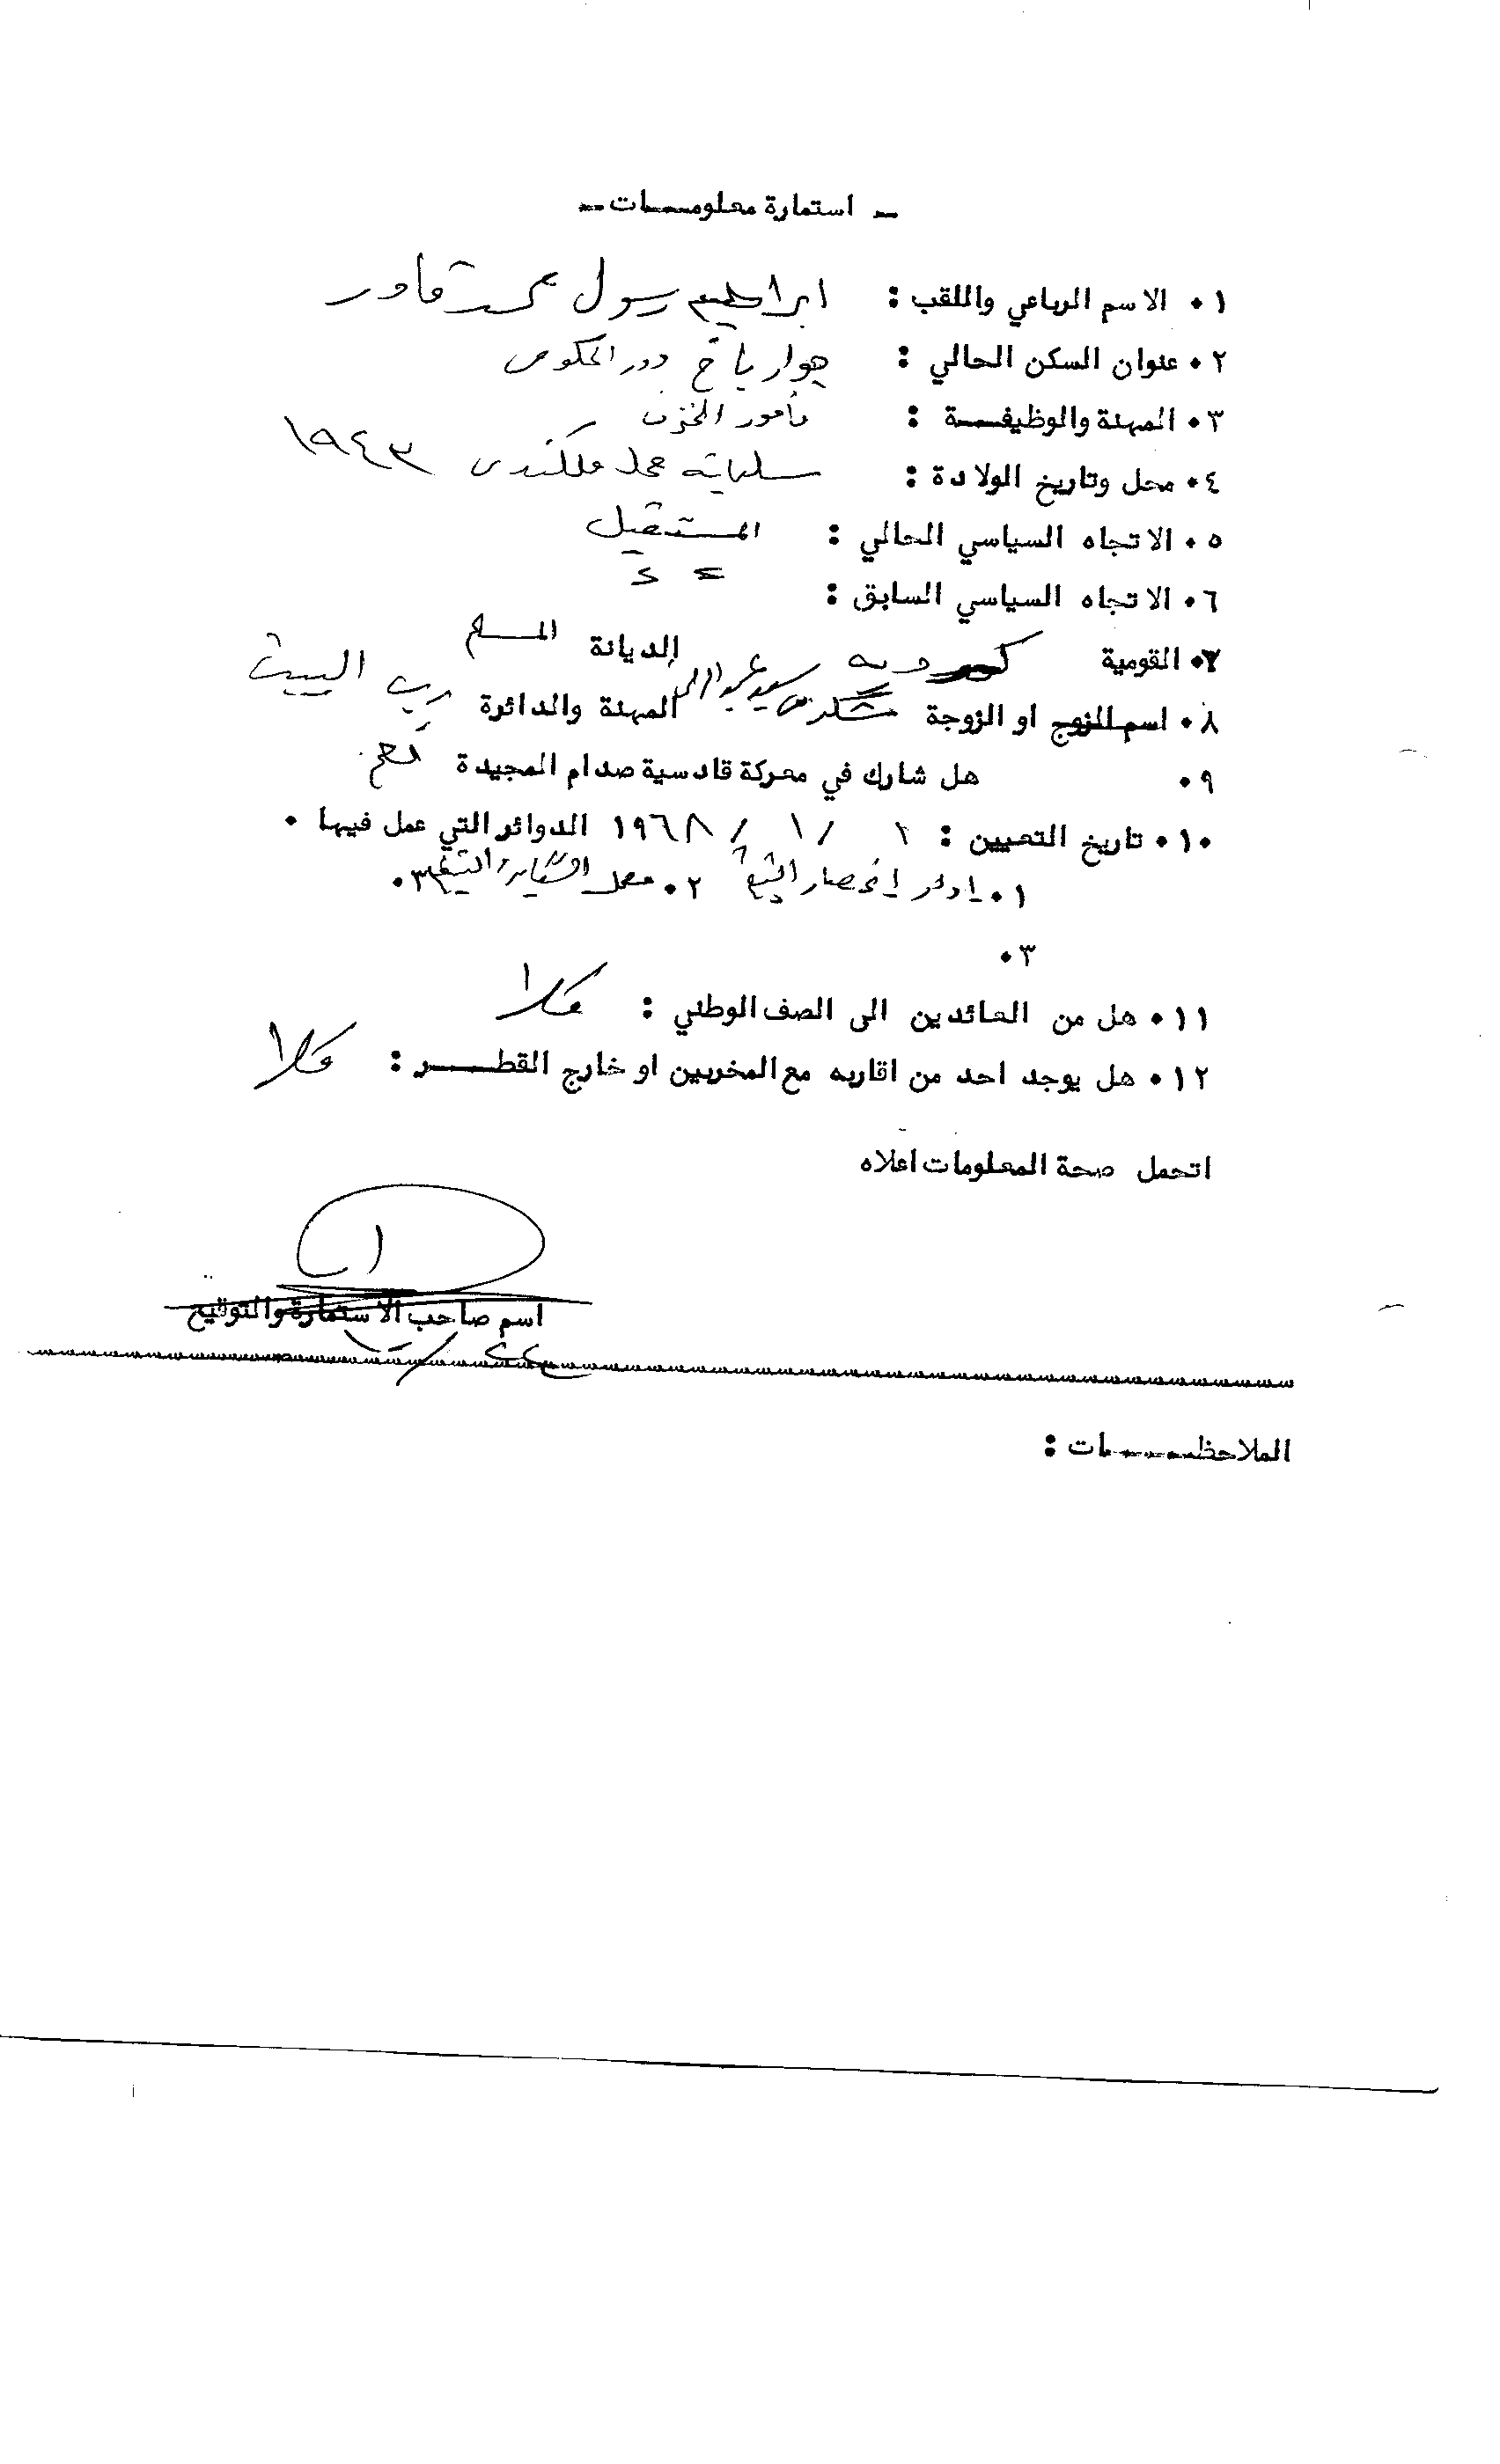 - استمارة معلومـــات -
٠١ الاسم الرباعي واللقب : ابراهيم رسول محمد قادر
٠٢ عنوان السكن الحالي : جوار باخ دور الحكومي
٠٣ المهنة والوظيفـــة : مأمور المخزن
٠٤ محل وتاريخ الولادة : سليمانيه محله ملكندى ١٩٤٣
٠٥ الاتجاه السياسي الحالي : المستقيل
٠٦ الاتجاه السياسي السابق : = =
٠٧ القومية كرديه الديانة المسلم
٠٨ اسم الزوج او الزوجة سعيد المهنة والدائرة رب البيت
٠٩ هل شارك في معركة قادسية صدام المجيدة نعم
٠١٠ تاريخ التعيين : ١ / ١ / ١٩٦٨ الدوائر التي عمل فيها ٠
٠١ انحصار التبغ ٠٢ معمل ٠٣
٠٣
٠١١ هل من العائدين الى الصف الوطني : كلا
٠١٢ هل يوجد احد من اقاربه مع المخربين او خارج القطـــر : كلا
اتحمل صحة المعلومات اعلاه
اسم صاحب الاستمارة والتوقيع
الملاحظـــات :